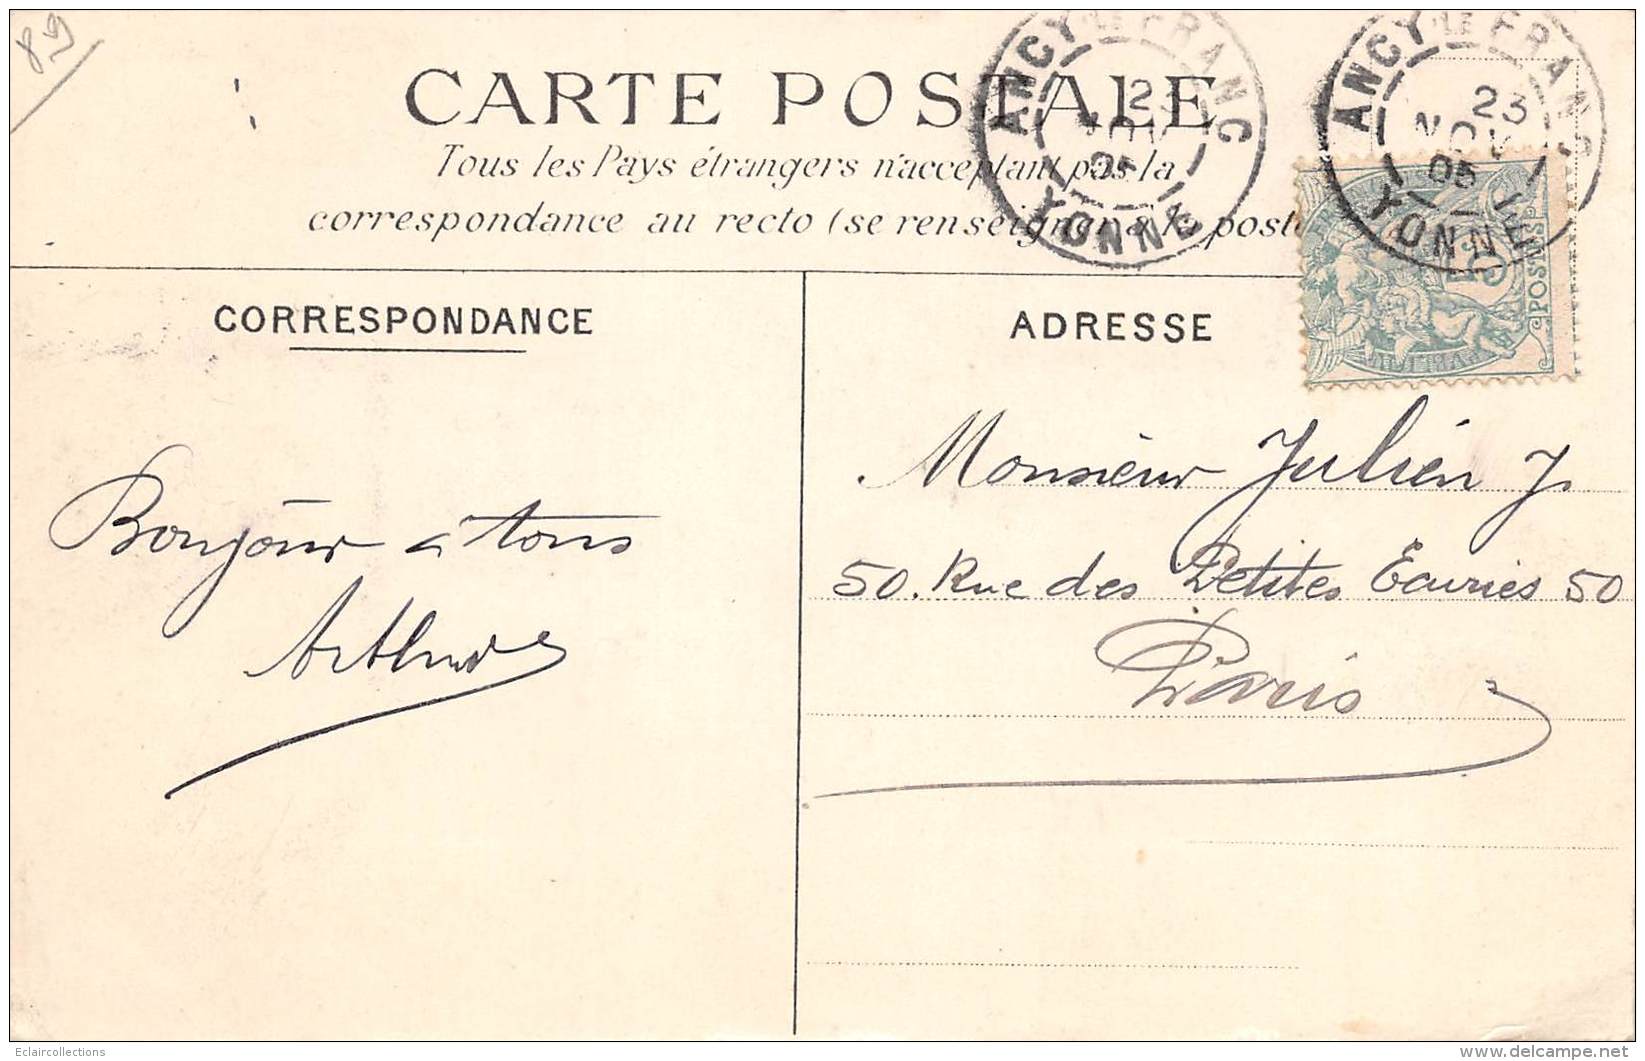 89
CARTE POSTALE
Tous les Pays étrangers n'acceptant pas la
correspondance au recto (se renseigner à la poste
ANCY LE FRANC
23
NOV
05
YONNE
ANCY LE FRANC
23
NOV
05
YONNE
5
POSTES
CORRESPONDANCE
ADRESSE
Bonjour à tous
Arthur
Monsieur Julien J.
50. Rue des Petites Ecuries 50
Paris
Eclaircollections
delcampe.net